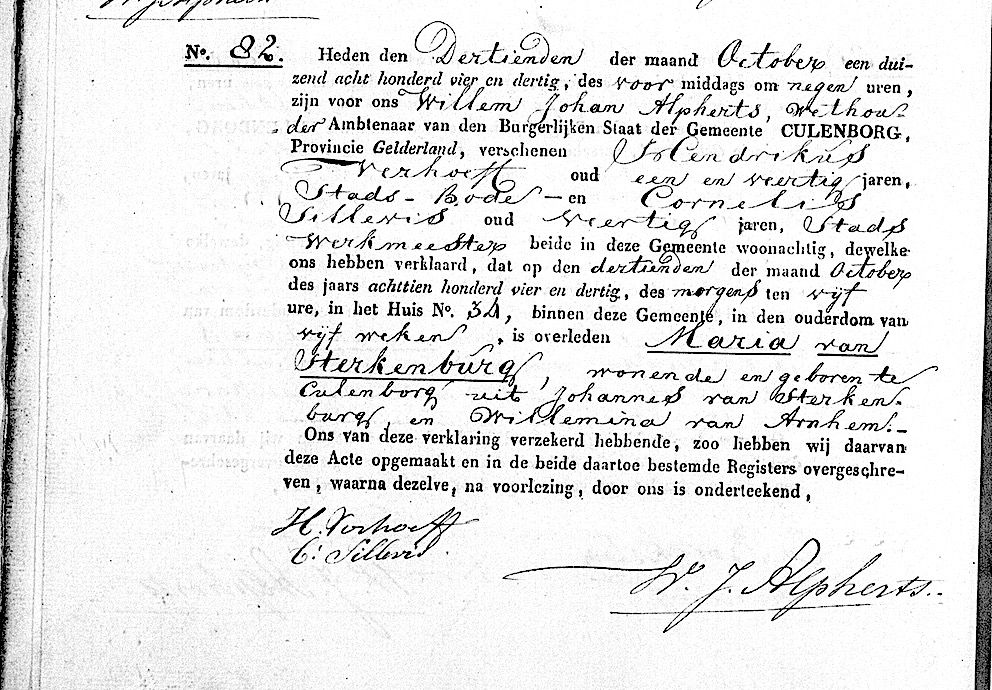 No. 82. Heden den Dertienden der maand October een dui-
zend acht honderd vier en dertig, des voor middags om negen uren,
zijn voor ons Willem Johan Alpherts, Wethou-
der Ambtenaar van den Burgerlijken Staat der Gemeente CULENBORG,
Provincie Gelderland, verschenen Hendrikus
Verhoeff oud een en veertig jaren,
Stads-Bode – en Cornelis
Sillevis oud Veertig jaren, Stads
Werkmeester beide in deze Gemeente woonachtig, dewelke
ons hebben verklaard, dat op den dertienden der maand October
des jaars achttien honderd vier en dertig, des morgens ten vijf
ure, in het Huis No. 34, binnen deze Gemeente, in den ouderdom van
vijf weken, is overleden Maria van
Sterkenburg, wonende en geboren te
Culenborg uit Johannes van Sterken-
burg, en Willemina van Arnhem.-
Ons van deze verklaring verzekerd hebbende, zoo hebben wij daarvan
deze Acte opgemaakt en in de beide daartoe bestemde Registers overgeschre-
ven, waarna dezelve, na voorlezing, door ons is onderteekend,
H. Verhoeff
C: Sillevis.
W. J. Alpherts.